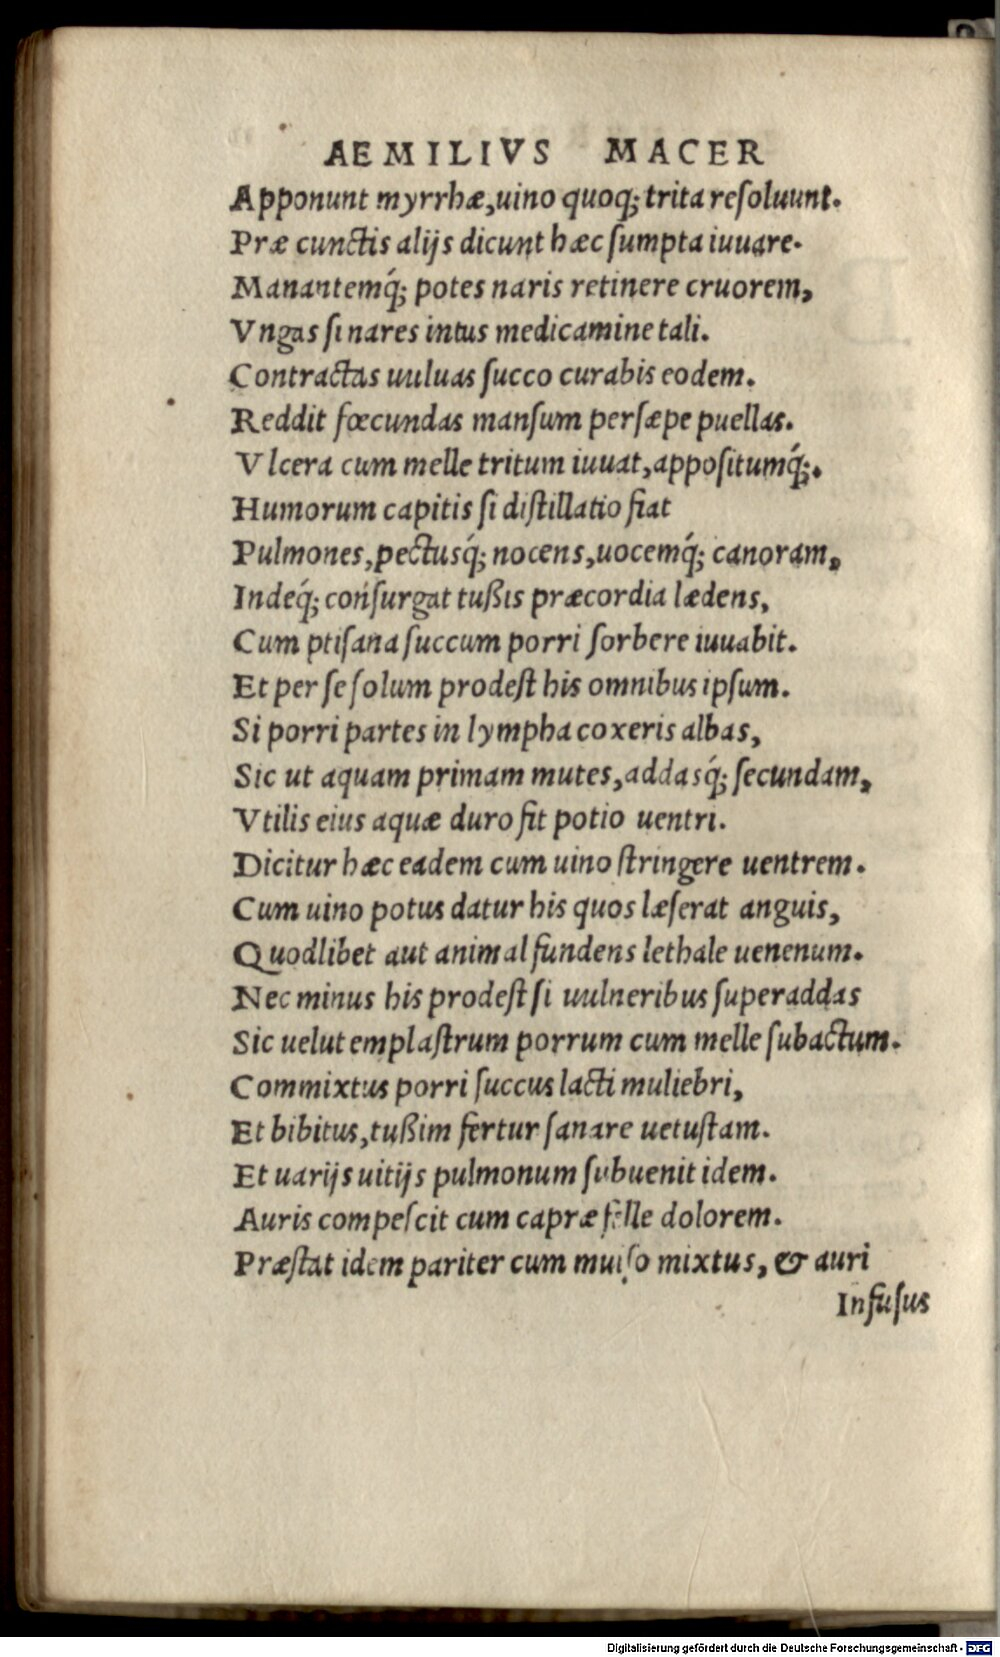 AEMILIVS MACER
Apponunt myrrhæ,uino quoq; trita reſoluunt.
Præ cunctis alijs dicunt hæc ſumpta iuuare.
Manantemq́; potes naris retinere cruorem,
Vngas ſi nares intus medicamine tali.
Contractas uuluas ſucco curabis eodem.
Reddit fœcundas manſum perſæpe puellas.
Vlcera cum melle tritum iuuat,appoſitumq́;.
Humorum capitis ſi diſtillatio fiat
Pulmones,pectusq́; nocens,uocemq́; canoram,
Indeq́; conſurgat tußis præcordia lædens,
Cum ptiſana ſuccum porri ſorbere iuuabit.
Et per ſe ſolum prodeſt his omnibus ipſum.
Si porri partes in lympha coxeris albas,
Sic ut aquam primam mutes,addasq́; ſecundam,
Vtilis eius aquæ duro fit potio uentri.
Dicitur hæc eadem cum uino ſtringere uentrem.
Cum uino potus datur his quos læſerat anguis,
Quodlibet aut animal fundens lethale uenenum.
Nec minus his prodeſt ſi uulneribus ſuperaddas
Sic uelut emplaſtrum porrum cum melle ſubactum.
Commixtus porri ſuccus lacti muliebri,
Et bibitus,tußim fertur ſanare uetuſtam.
Et uarijs uitijs pulmonum ſubuenit idem.
Auris compeſcit cum capræ felle dolorem.
Præſtat idem pariter cum mulſo mixtus, & auri
Infuſus
Digitalisierung gefördert durch die Deutsche Forschungsgemeinschaft - DFG